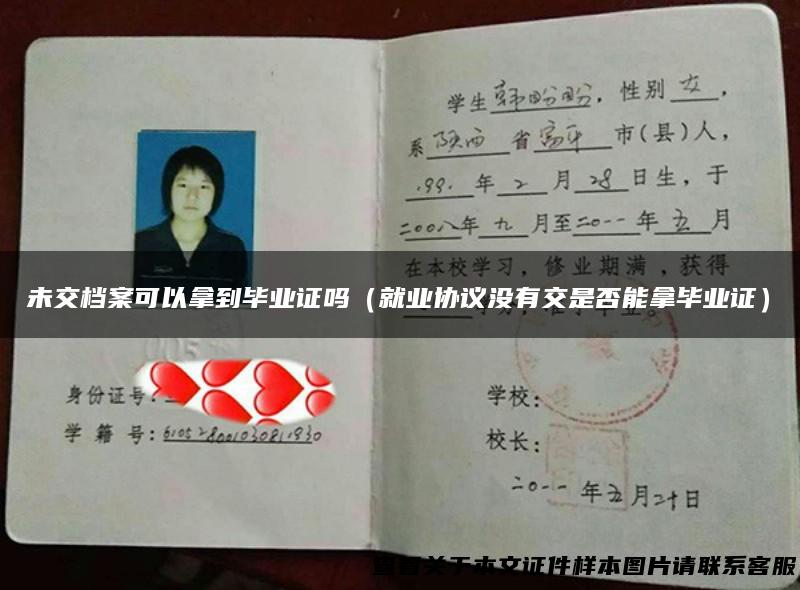 学生韩盼盼，性别女，
系陕西省富平市(县)人，
1991年2月28日生，于
二〇〇八年九月至二〇一一年五月
在本校学习，修业期满，获得
未交档案可以拿到毕业证吗（就业协议没有交是否能拿毕业证）
身份证号：
学籍号：
学校：
校长：
二〇一一年五月二十日
查看关于本文证件样本图片请联系客服